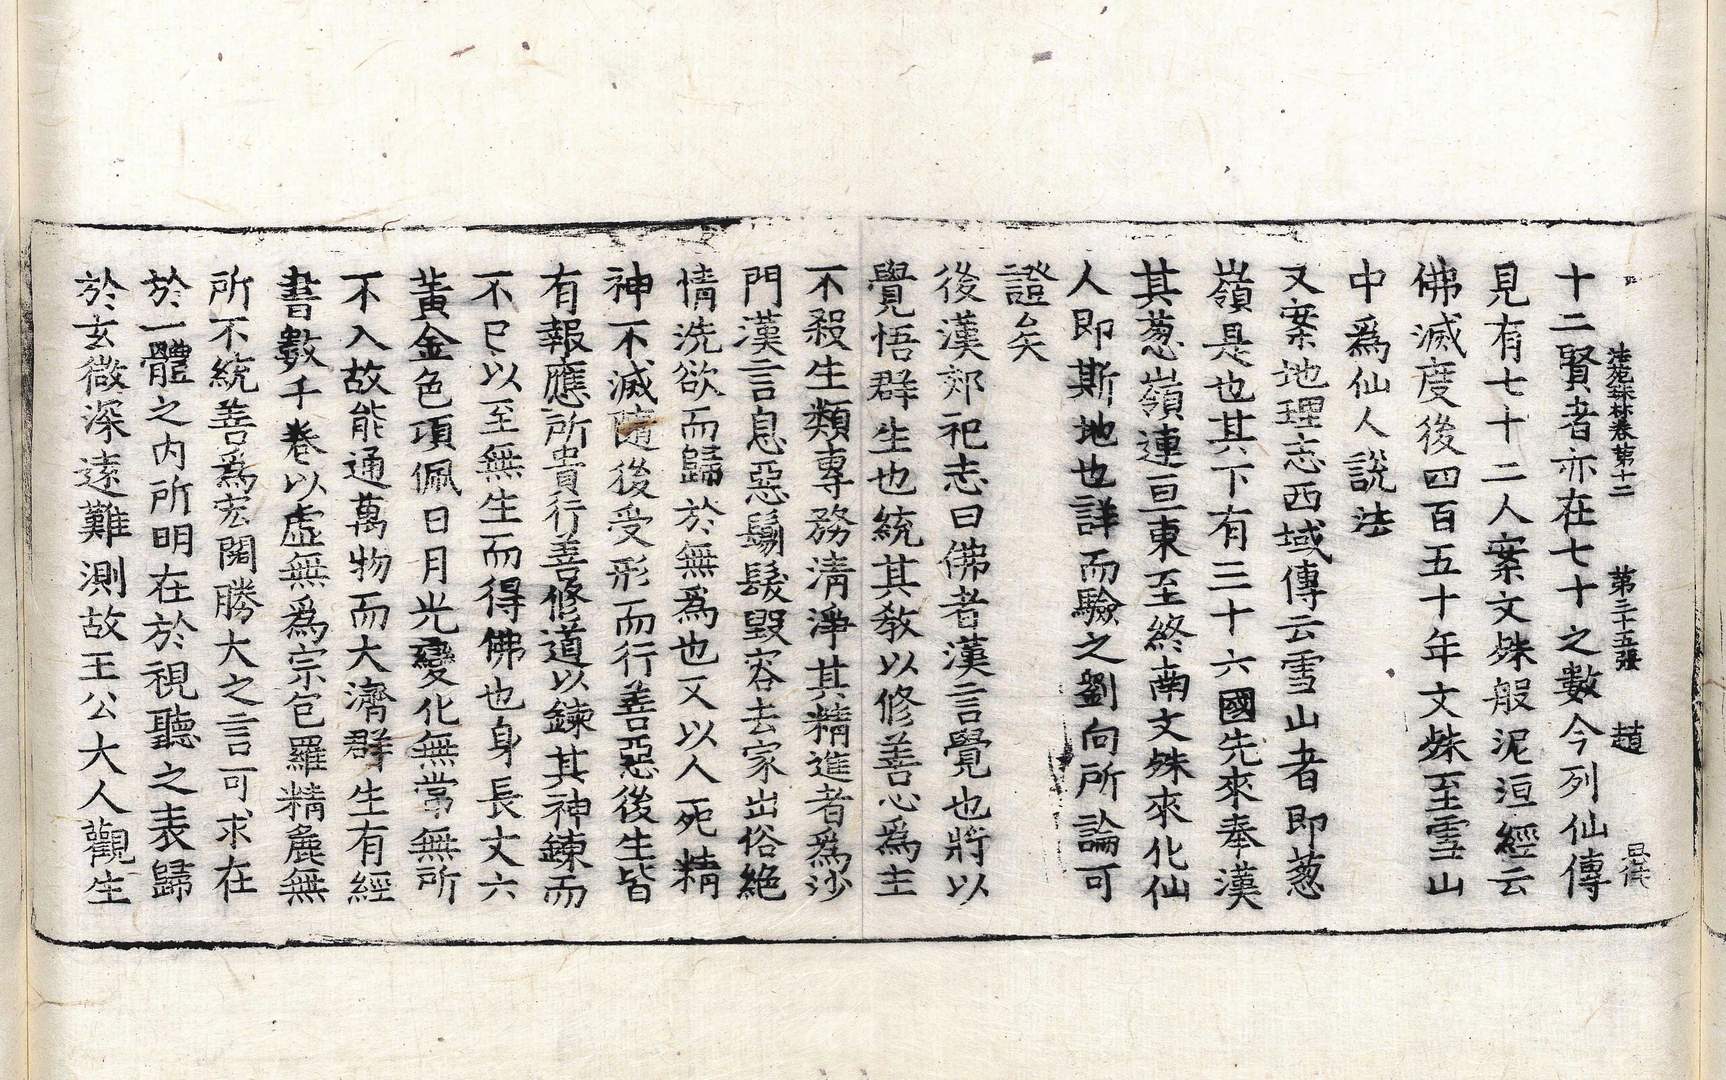 法苑珠林卷第十二 第三十五張 趙
十二賢者亦在七十之數今列仙傳
見有七十二人案文殊般泥洹經云
佛滅度後四百五十年文殊至雪山
中爲仙人說法
又案地理志西域傳云雪山者即葱
嶺是也其下有三十六國先來奉漢
其葱嶺連亘東至終南文殊來化仙
人即斯地也詳而驗之劉向所論可
證矣
後漢郊祀志曰佛者漢言覺也將以
覺悟群生也統其敎以修善心爲主
不殺生類專務淸淨其精進者爲沙
門漢言息惡鬀髮毀容去家出俗絶
情洗欲而歸於無爲也又以人死精
神不滅隨後受形而行善惡後生皆
有報應所貴行善修道以鍊其神鍊而
不已以至無生而得佛也身長丈六
黃金色項佩日月光變化無常無所
不入故能通萬物而大濟群生有經
書數千卷以虛無爲宗包羅精麁無
所不統善爲宏闊勝大之言可求在
於一體之內所明在於視聽之表歸
於玄微深遠難測故王公大人觀生